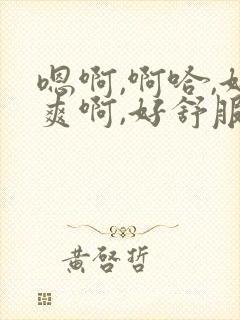 嗯啊,啊哈,好
爽啊,好舒服
黄启哲